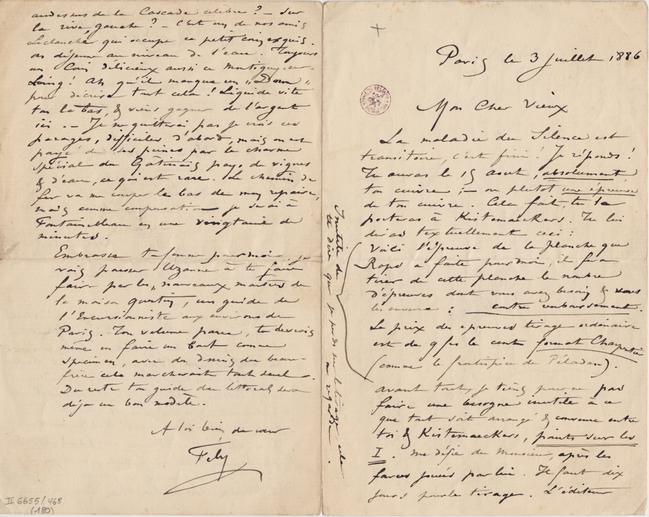 Paris le 3 juillet 1886
Mon Cher Vieux
La maladie du Silence est
transitoire, c'est fini ! Je réponds !
Tu auras le 15 Aout, absolument
ton cuivre ; – ou plutot une épreuve
de ton cuivre. Cela fait, tu la
porteras à Kistemaeckers. Tu lui
diras textuellement ceci :
Voilà l'épreuve de la planche que
Rops a faite pour moi, il fera
tirer de cette planche le nombre
d'épreuves dont vous avez besoin & vous
les enverra : contre remboursement.
Le prix des épreuves tirage ordinaire
est de 9 frs le cent format Charpentier
(comme le frontispice de Péladan).
avant tout, je tiens à ne pas
faire une besogne inutile à ce
que tout soit arrangé & convenu entre
toi & Kistemaeckers, points sur les
I. me défie du Monsieur, après les
farces jouées par lui. Il faut dix
jours pour le tirage. L'éditeur
Inutile de
lui dire que je perds sur le tirage
au dessus de la Cascade celebre ? – Sur
la rive gauche ? – C'est un de nos amis
qui occupe ce petit coin exquis.
On déjeune au niveau de l'eau. Toujours
un Coin délicieux aussi ce Montigny-sur-
Loing ! Ah qu'il manque un „Dom"
pour décrire tout cela ! Liquide vite
ton la bas, & viens gagner de l'argent
ici. – Je ne quitterai pas je crois ces
parages, difficiles d'abord mais on est
payé de ses peines par le charme
Spécial du Gâtinais pays de vignes
& d'eau, ce qui est rare. Le chemin de
fer va me couper le bas de mon repaire,
mais comme compensation – je serai à
Fontainebleau en une vingtaine de
minutes.
Embrasse ta femme pour moi. je
vais pousser Uzanne à te faire
faire par les nouveaux maitres de
la maison Quantin, un guide de
l'Excursionniste aux environs de
Paris. Ton volume paru, tu devrais
même en faire un bout comme
specimen, avec des dessins du beau-
frère cela marcherait tout seul.
Du reste ton guide du littoral sera
déjà un bon modèle.
A toi bien de coeur
Fély
II 6655/468
(180)